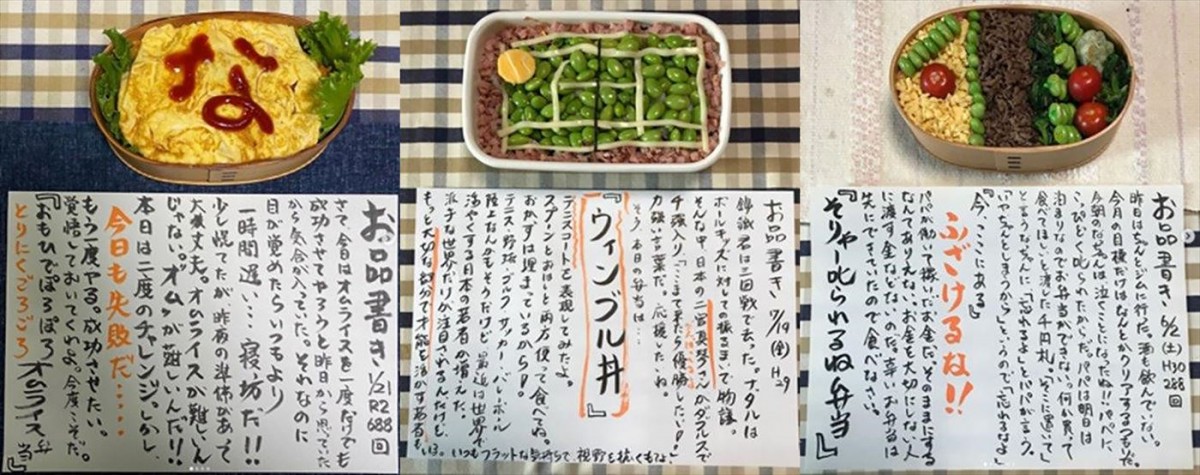 な
お品書き 1/21 R2 688回
さて、今日はオムライスを一度だけでも
成功させてやろうと昨日から思っていた
から気合が入っていた。それなのに
目が覚めたらいつもより
一時間遅い…寝坊だ!!
少し慌てたが、昨夜の準備があって
大丈夫。オムライスが難しいん
じゃない。"オム"が難しいんだ!!
本日は二度のチャレンジ。しかし、
今日も失敗だ……
もう一度やる。成功させたい。
覚悟しておいてくれよ。今度こそだ。
とりにくごろごろ
『おもひでぽろぽろオムライス弁当』
お品書き 7/19(金)H29
錦織君は三回戦で去った。ナダルは
ボールキッズに対しての振るまいで物議。
そんな中、日本の二宮真琴さんがダブルスで
4強入り。「ここまで来たら優勝したい!」
力強い言葉だ。応援したいな。
そう、本日の弁当は…
『ウィンブル丼』
テニスコートを表現してみたよ。
スプーンとおはしと両方使って食べてね。
おかずは埋まっているから
テニス・野球・ゴルフ・サッカー・バレーボール
陸上なんかもそうだけど、最近は世界で
活やくする日本の若者が増えた。
派手な世界だけが注目されてるんだけど、
もっと大切な部分で才能を活かす若者もいる。
いつもフラットな気持ちで視野を拡くもとな
お品書き 6/2(土)H30 288回
昨日は
ジムに行た。酒も飲んでない。
今月の目標だけはなんとかクリアするつもりだ。
今朝の
は泣くことになったね!!パパに
こっぴどく叱られたからだ。パパは明日は
泊まりなのでお弁当ができない。何か買って
食べてほしいと渡した千円札。「そこに置いて
いて」
「忘れるなよ」とパパが言う。
というので「忘れるなよ」
『今、ここにある』
ふざけるな!!
パパが働いて稼いだお金だ。そのままにする
なんてありえない。お金を大切にしない人
に渡す金などないのだ。幸いお弁当は
先にできていたので食べなさい。
『そりゃー叱られるね弁当』